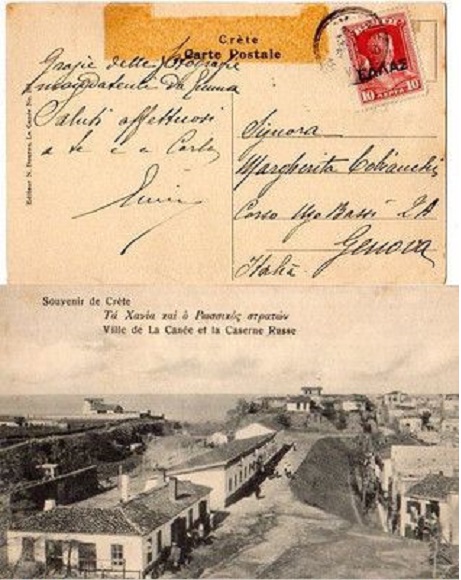 Crète
Carte Postale
ΕΛΛΑΣ
10 10
Grazie delle fotografie
mandatemi da Smirna
Saluti affettuosi
a te e a Carlo
Signora
Margherita Cobianchi
Corso Ugo Bassi 2A
Genova
Italia
Souvenir de Crète
Τὰ Χανία καὶ ὁ Ρωσσικὸς στρατών
Ville de La Canée et la Caserne Russe